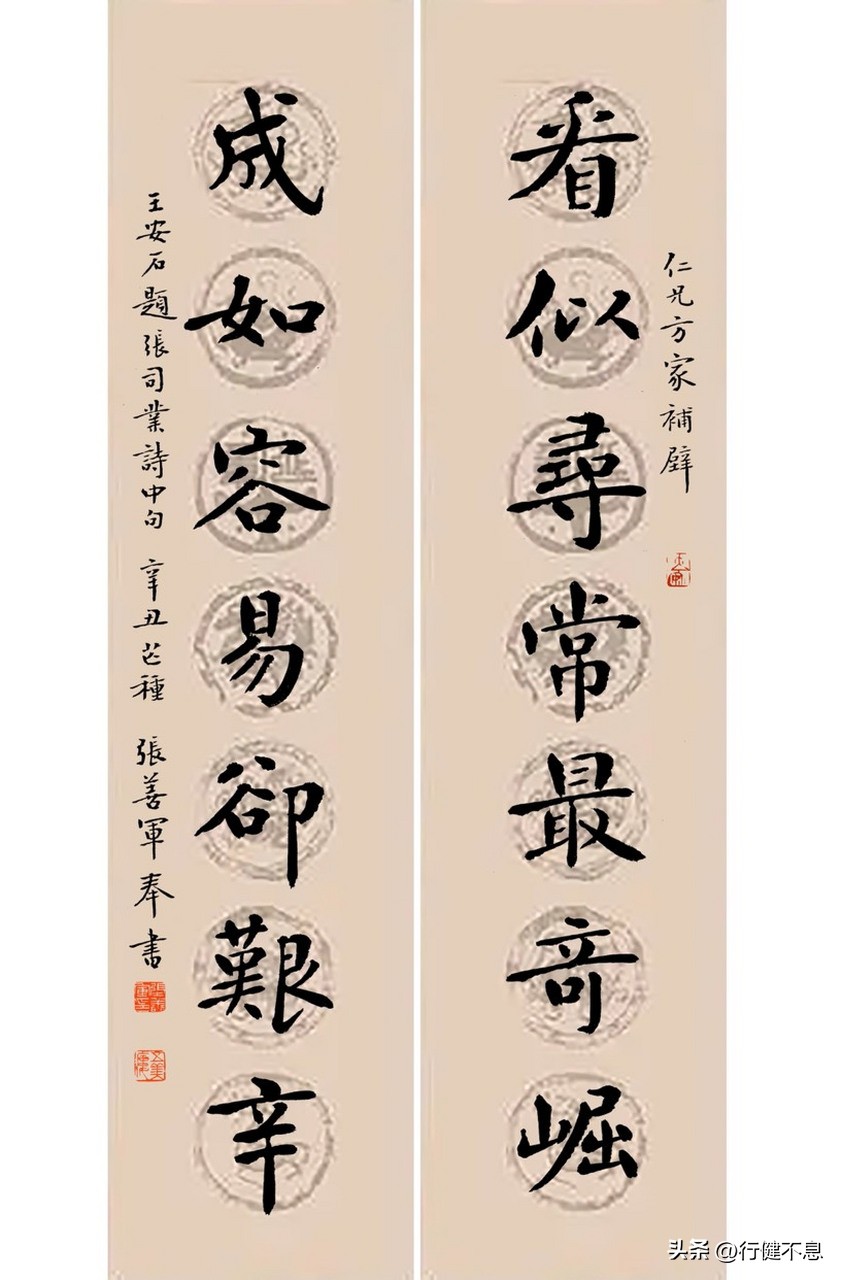 仁兄方家補壁
看似尋常最奇崛
成如容易卻艱辛
王安石題張司業詩中句 辛丑芒種 張善軍奉書
头条 @行健不息